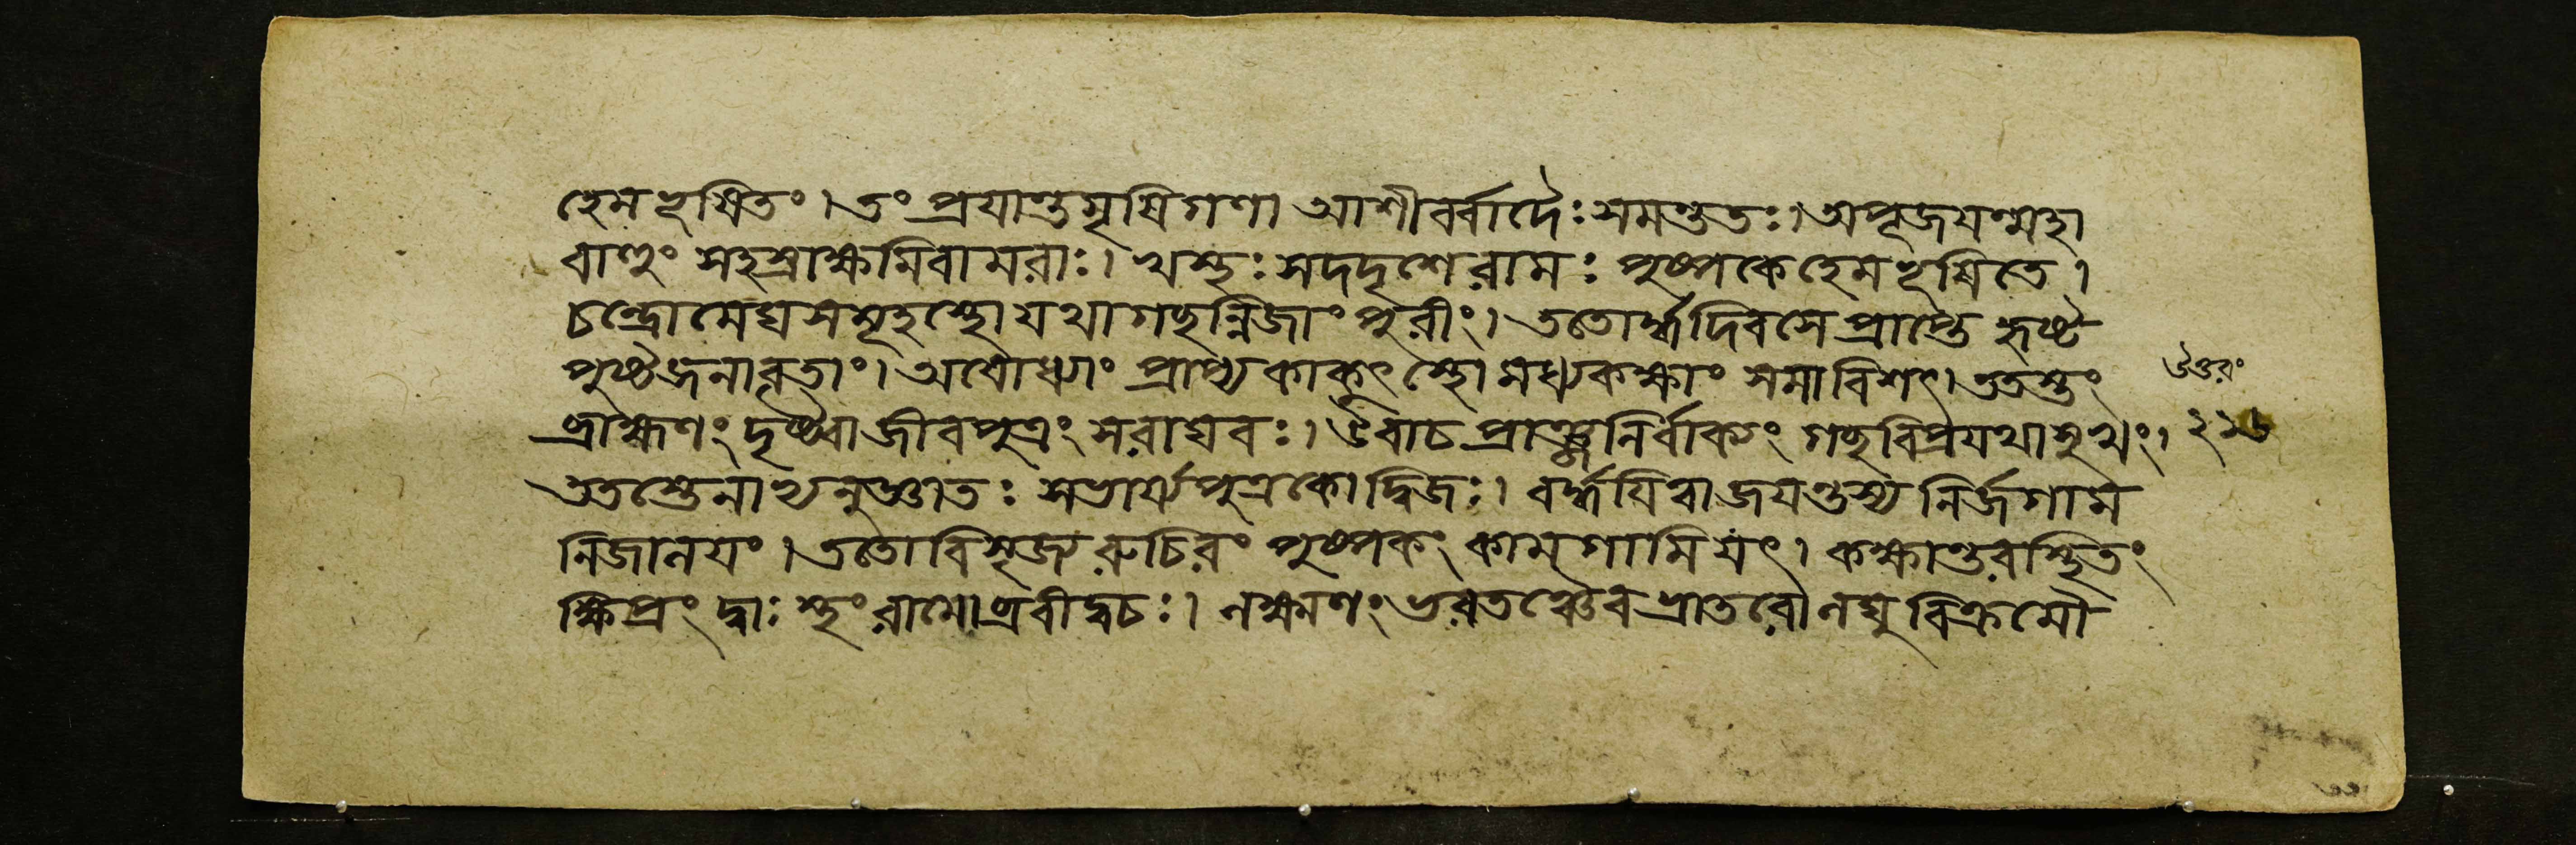 হেমভূষিতং। তং প্রযান্তমৃষিগণা আশীর্ব্বাদৈঃ সমন্ততঃ। অপূজযন্মহা
বাহুং সহস্রাক্ষমিবামরাঃ। খস্থঃ সদদৃশে রামঃ পুষ্পকে হেমভূষিতে।
চন্দ্রো মেঘসমূহস্থো যথা গছন্নিজাং পুরীং। ততোর্দ্ধদিবসে প্রাপ্তে হৃষ্ট
পুষ্টজনাবৃতাং। অযোধ্যাং প্রাপ্য কাকুৎস্থো মধ্যকক্ষাং সমাবিশৎ। ততস্তং
ব্রাহ্মণং দৃষ্ট্বা জীবপুত্রং স রাঘবঃ। উবাচ প্রাঞ্জলির্বাক্যং গছ বিপ্র যথাসুখং।
ততস্তেনাভ্যনুজ্ঞাতঃ সভার্য্যপুত্রকো দ্বিজঃ। বর্দ্ধযিত্বা জযন্তস্য নির্জগাম
নিজালযং। ততো বিসৃজ্য রুচিরং পুষ্পকং কামগামি যৎ। কক্ষান্তরস্থিতং
ক্ষিপ্রং দ্বাঃস্থং রামোব্রবীদ্বচঃ। লক্ষ্মণং ভরতঞ্চৈব ভ্রাতরৌ লঘুবিক্রমৌ
উত্তরং